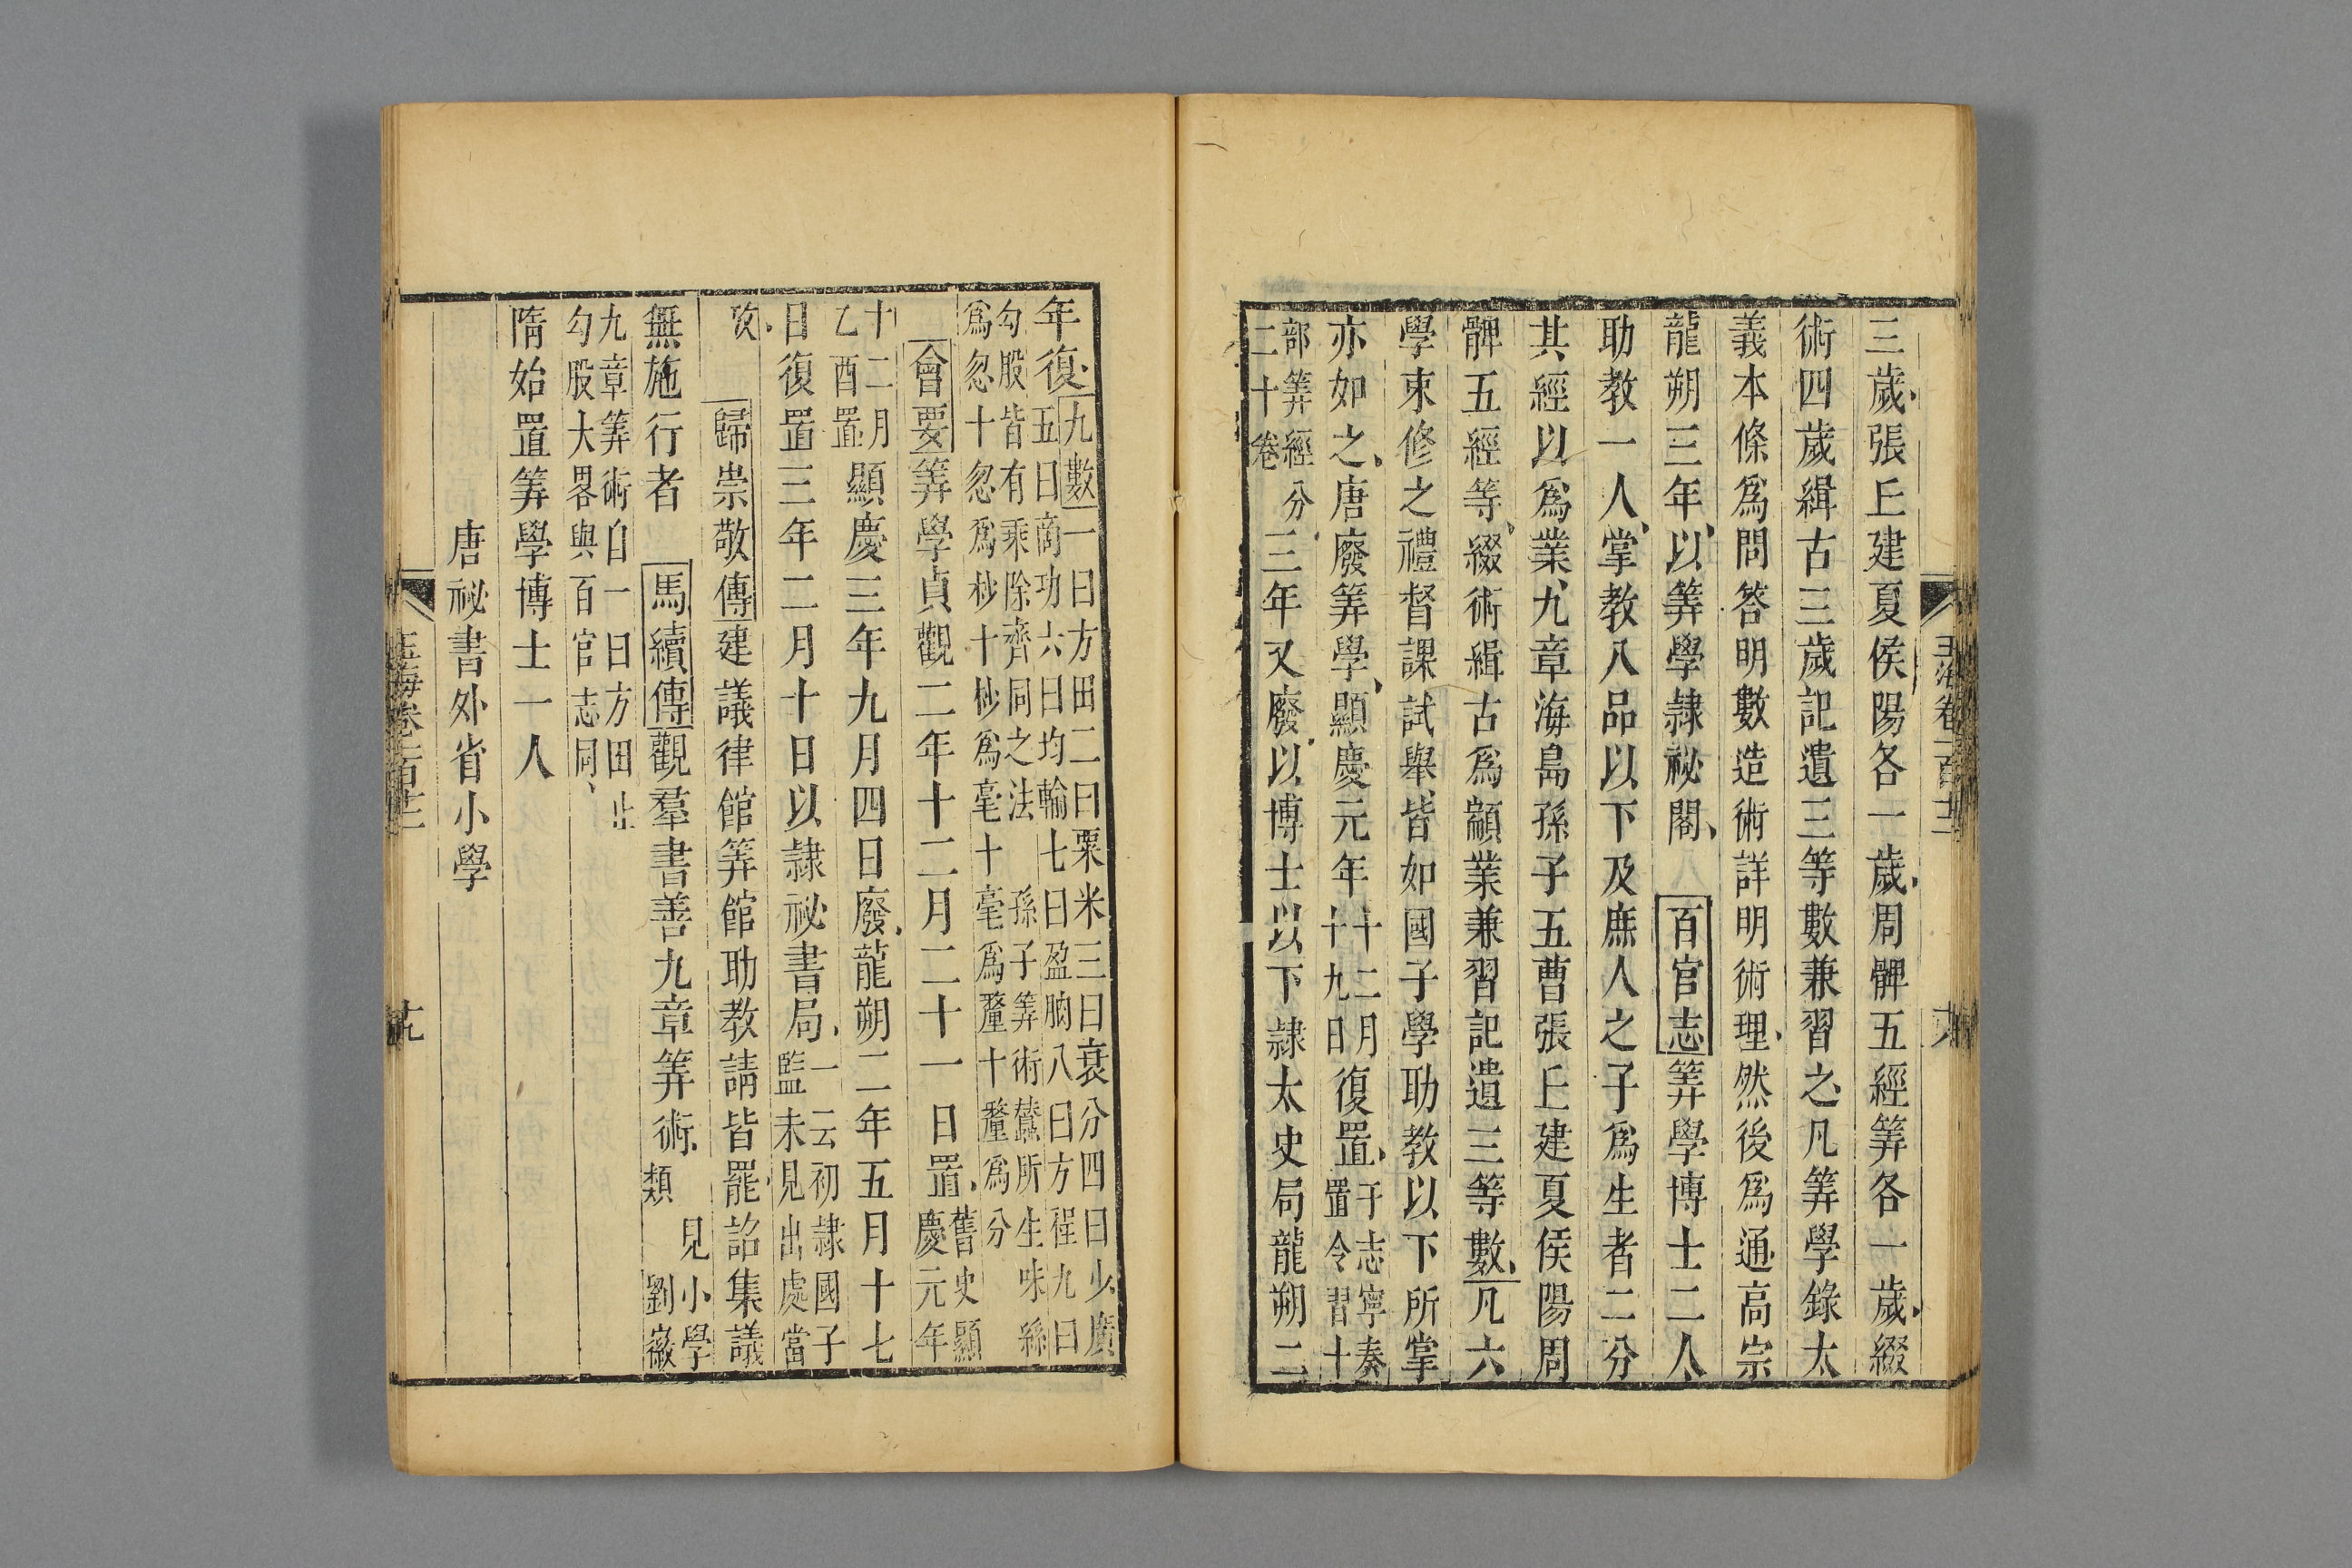 三歲張丘建夏侯陽各一歲周髀五經筭各一歲綴
術四歲緝古三歲記遺三等數兼習之凡筭學錄大
義本條爲問答明數造術詳明術理然後爲通高宗
龍朔三年以筭學隷祕閣百官志筭學博士二人
助教一人掌教八品以下及庶人之子爲生者二分
其經以爲業九章海島孫子五曹張丘建夏侯陽周
髀五經等綴術緝古爲顓業兼習記遺三等數凡六
學束修之禮督課試舉皆如國子學助教以下所掌
亦如之唐廢筭學顯慶元年十二月十九日復置于志寧奏置令習十
部筭經分二十卷三年又廢以博士以下隷太史局龍朔二
年復九數一曰方田二曰粟米三曰衰分四曰少廣五曰商功六曰均輸七曰盈朒八曰方程九曰
勾股皆有乘除齊同之法 孫子筭術蠶所生吐絲爲忽十忽爲秒十秒爲毫十毫爲釐十釐爲分
會要筭學貞觀二年十二月二十一日置舊史顯慶元年
十二月乙酉置顯慶三年九月四日廢龍朔二年五月十七
日復置三年二月十日以隷祕書局一云初隷國子監未見出處當
攷 歸崇敬傳建議律館筭館助教請皆罷詔集議
無施行者 馬續傳觀羣書善九章筭術見小學類 劉徽
九章筭術自一曰方田止勾股大畧與百官志同
隋始置筭學博士一人
唐祕書外省小學
玉海卷一百十二
十九